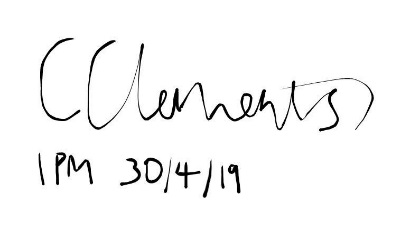 CClements
1PM 30/4/19